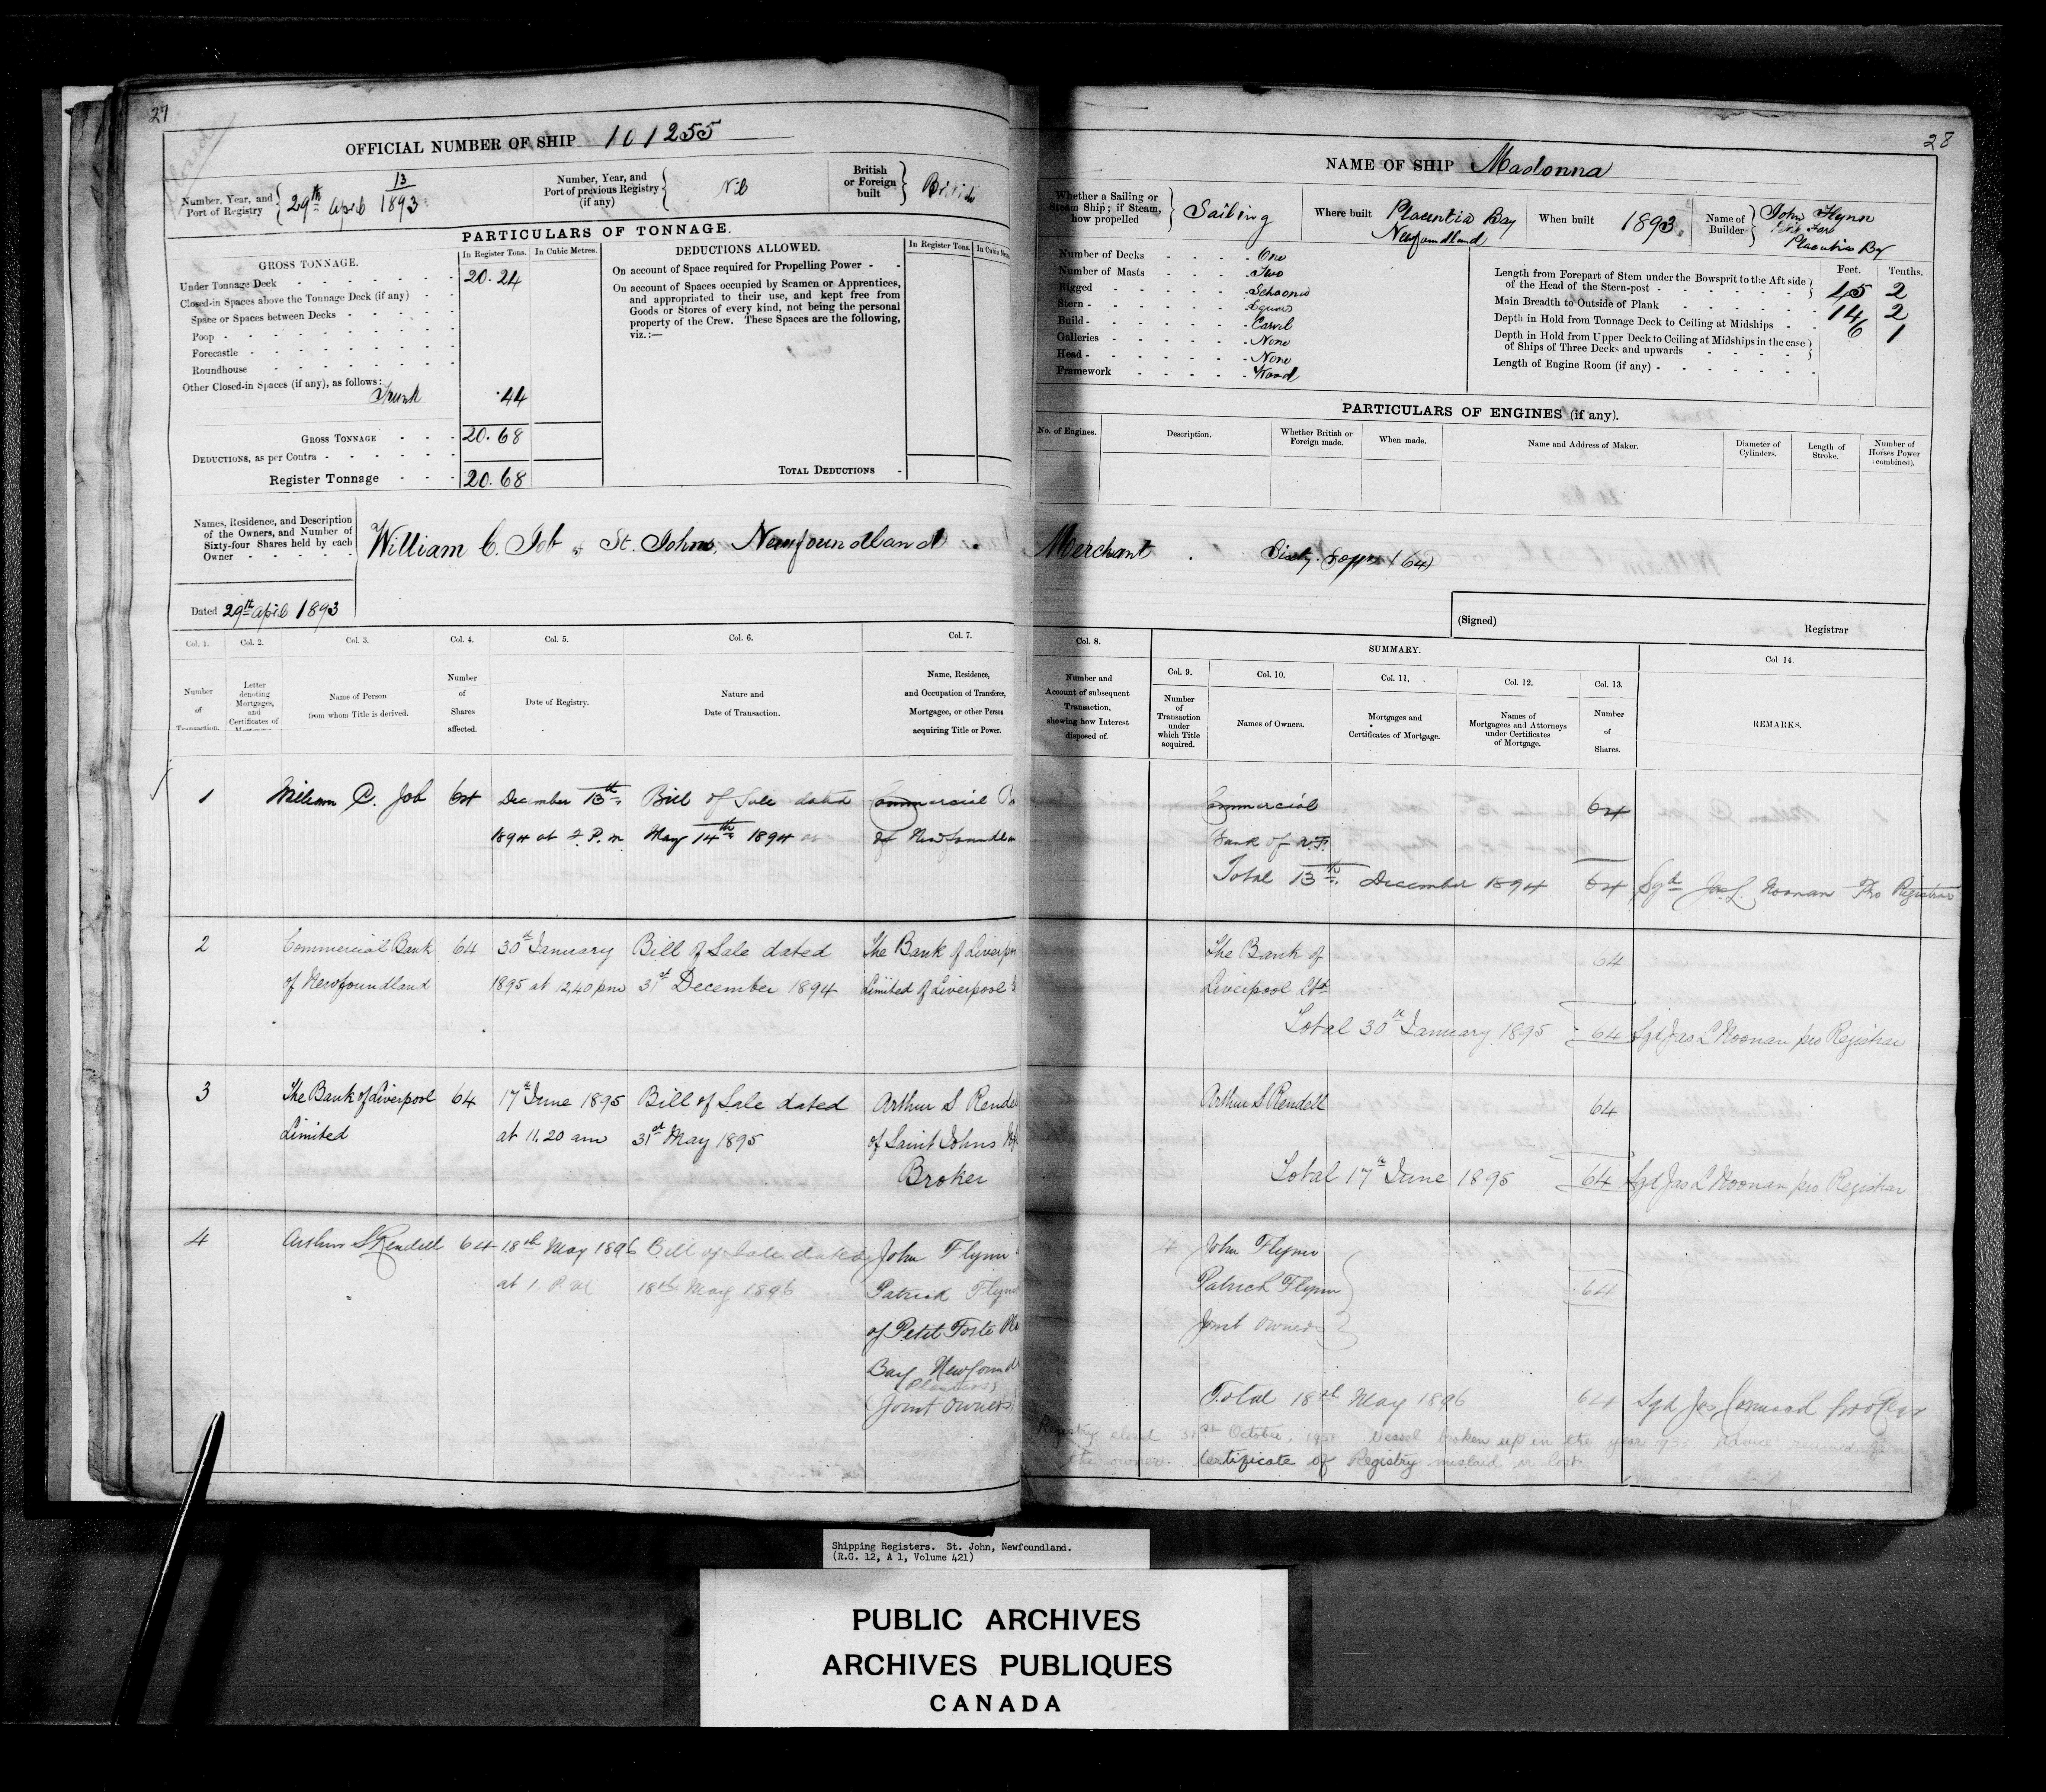 27
Closed
OFFICIAL NUMBER OF SHIP 101255
Number, Year, and Port of Registry { 13 29th April 1893
Number, Year, and Port of previous Registry (if any) { Nil
British or Foreign built } British
PARTICULARS OF TONNAGE.
GROSS TONNAGE. In Register Tons. In Cubic Metres.
Under Tonnage Deck - - - - 20.24
Closed-in Spaces above the Tonnage Deck (if any) - -
Space or Spaces between Decks - - - -
Poop - - - - - - - -
Forecastle - - - - - - -
Roundhouse - - - - - - -
Other Closed-in Spaces (if any), as follows:
Trunk .44
GROSS TONNAGE - - - 20.68
DEDUCTIONS, as per Contra - - - - -
Register Tonnage - - - 20.68
DEDUCTIONS ALLOWED. In Register Tons. In Cubic
On account of Space required for Propelling Power - -
On account of Spaces occupied by Seamen or Apprentices,
and appropriated to their use, and kept free from
Goods or Stores of every kind, not being the personal
property of the Crew. These Spaces are the following,
viz.:—
TOTAL DEDUCTIONS -
Names, Residence, and Description
of the Owners, and Number of
Sixty-four Shares held by each
Owner - - - - -
William C. Job of St. Johns, Newfoundland.
Dated 29th April 1893
Col. 1. Col. 2. Col. 3. Col. 4. Col. 5. Col. 6. Col. 7.
Number of Transaction.
Letter denoting Mortgages, and Certificates of
Name of Person from whom Title is derived.
Number of Shares affected.
Date of Registry.
Nature and Date of Transaction.
Name, Residence, and Occupation of Transferee, Mortgagee, or other Person acquiring Title or Power.
1 William C. Job 64 December 13th, Bill of Sale dated Commercial
1894 at 2. P.m. May 14th 1894 of
2 Commercial Bank 64 30th January Bill of Sale dated The Bank of
of Newfoundland 1895 at 12.40 pm 31st December 1894 Limited of Liverpool
3 The Bank of Liverpool 64 17th June 1895 Bill of Sale dated Arthur S
Limited at 11.20 am 31st May 1895 of Saint Johns
Broker
4 Arthur S Rendell 64 18th May 1896 Bill of Sale dated John Flynn
at 1. P.M 18th May 1896 Patrick
of Petit Forte
Bay
(Planters)
(Joint Owners)
28
NAME OF SHIP Madonna
Whether a Sailing or Steam Ship; if Steam, how propelled } Sailing
Where built Placentia Bay Newfoundland
When built 1893
Name of Builder } John Flynn
Placentia Bay
Number of Decks - - - - One
Number of Masts - - - - Two
Rigged - - - - - Schooner
Stern - - - - - Square
Build - - - - - Carvel
Galleries - - - - - None
Head - - - - - None
Framework - - - - - Wood
Feet. Tenths.
Length from Forepart of Stem under the Bowsprit to the Aft side
of the Head of the Stern-post - - - - - } 45 2
Main Breadth to Outside of Plank - - - - - 14 2
Depth in Hold from Tonnage Deck to Ceiling at Midships - - 6 1
Depth in Hold from Upper Deck to Ceiling at Midships in the case
of Ships of Three Decks and upwards - - - -
Length of Engine Room (if any) - - - - -
PARTICULARS OF ENGINES (if any).
No. of Engines. Description. Whether British or Foreign made. When made. Name and Address of Maker. Diameter of Cylinders. Length of Stroke. Number of Horses Power (combined).
Merchant. Sixty four (64)
(Signed) Registrar
Col. 8. SUMMARY. Col 14.
Col. 9. Col. 10. Col. 11. Col. 12. Col. 13.
Number and Account of subsequent Transaction, showing how Interest disposed of.
Number of Transaction under which Title acquired.
Names of Owners.
Mortgages and Certificates of Mortgage.
Names of Mortgagees and Attorneys under Certificates of Mortgage.
Number of Shares.
REMARKS.
Commercial 64
Bank of N.F.
Total 13th. December 1894 64 Sgd Jas. L. Noonan Pro Registrar
The Bank of 64
Liverpool Ltd
Total 30th January 1895 64 Sgd Jas L Noonan pro Registrar
Arthur S Rendell 64
Total 17th June 1895 64 Sgd Jas L Noonan pro Registrar
4 John Flynn
Patrick Flynn } 64
Joint Owners
Total 18th May 1896 64 Sgd Jas
Registry closed 31st October, 1951. Vessel broken up in the year 1933. Advice received from
the owner. Certificate of Registry mislaid or lost.
Shipping Registers. St. John, Newfoundland.
(R.G. 12, A 1, Volume 421)
PUBLIC ARCHIVES
ARCHIVES PUBLIQUES
CANADA